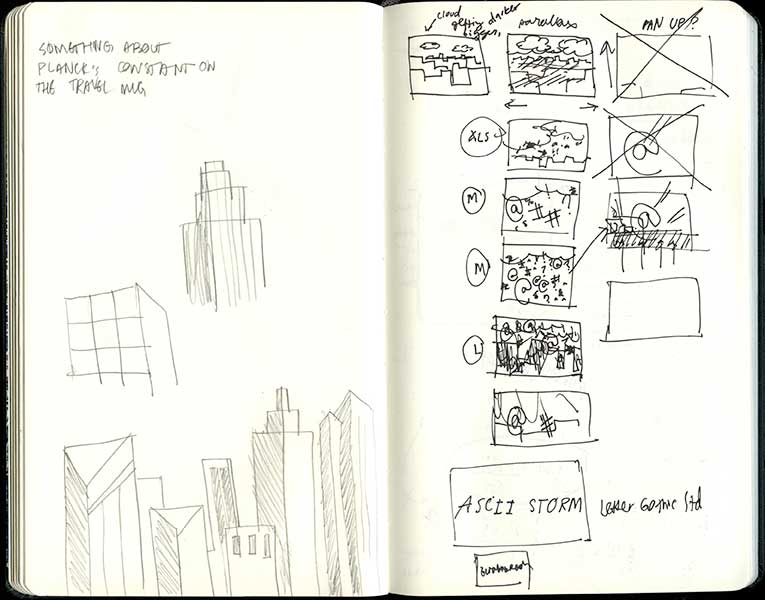 SOMETHING ABOUT
PLANCK'S CONSTANT ON
THE TRAVEL MUG
cloud getting darker
bigger,
parallax
PAN UP?
XLS
@
M
@ # #
@
M
@ @ @
L
@ #
ASCII STORM
Letter Gothic Std